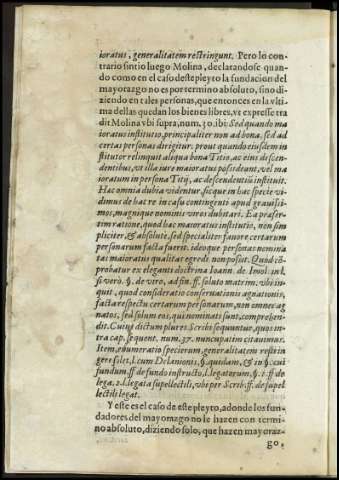 ioratus, generalitatem restringunt. Pero lo con-
trario sintio luego Molina, declarandose quan-
do como en el caso deste pleyto la fundacion del
mayorazgo no es por termino absoluto, sino di-
ziendo en tales personas, que entonces en la vlti
ma dellas quedan los bienes libres, vt expresse tra
dit Molina vbi supra, num. 30. ibi: Sed quando ma
ioratus institutio, principaliter non ad bona, sed ad
certas personas dirigitur, prout quando eiusdem in
stitutor relinquit aliqua bona Titio, ac eius descen-
dentibus, vt illa iure maioratus possideant, vel ma
ioratum in persona Titij, ac descendentiũ instituit.
Hac omnia dubia videntur, sicque in hac specie vi-
dimus de hac re in casu contingenti apud grauissi-
mos, magnique nominis viros dubitari. Ea præser-
tim ratione, quod hac maioratus institutio, non sim
pliciter, & absolute, sed specialiter fauore certarum
personarum facta fuerit, ideoque personas nomina
tas maioratus qualitas egredi non possit. Quod cõ-
probatur ex eleganti doctrina Ioann. de Imol. in l.
si vero. §. de viro, ad fin. ff. soluto matrim. vbi in-
quit, quod consideratio conseruationis agnationis,
facta respectu certarum personarum, non omnes ag
natos, sed solum eos, qui nominati sunt, comprehen-
dit. Cuius dictum plures Scribẽ sequuntur, quos in-
tra cap. sequent. num. 37. nuncupatim citauimus.
Item, enumeratio specierum, generalitatem restrin
gere solet, l. cum Delanionis, §. quidam, & in §. cui
fundum. ff. de fundo instructo, l. legatorum, §. 1. ff. de
lega. 2. l. legata supellectili, vbi per Scrib. ff. de supel
lectili legat.
Y este es el caso de este pleyto, adonde los fun-
dadores del mayorazgo no le hazen con termi-
no absoluto, diziendo solo, que hazen mayoraz-
go,